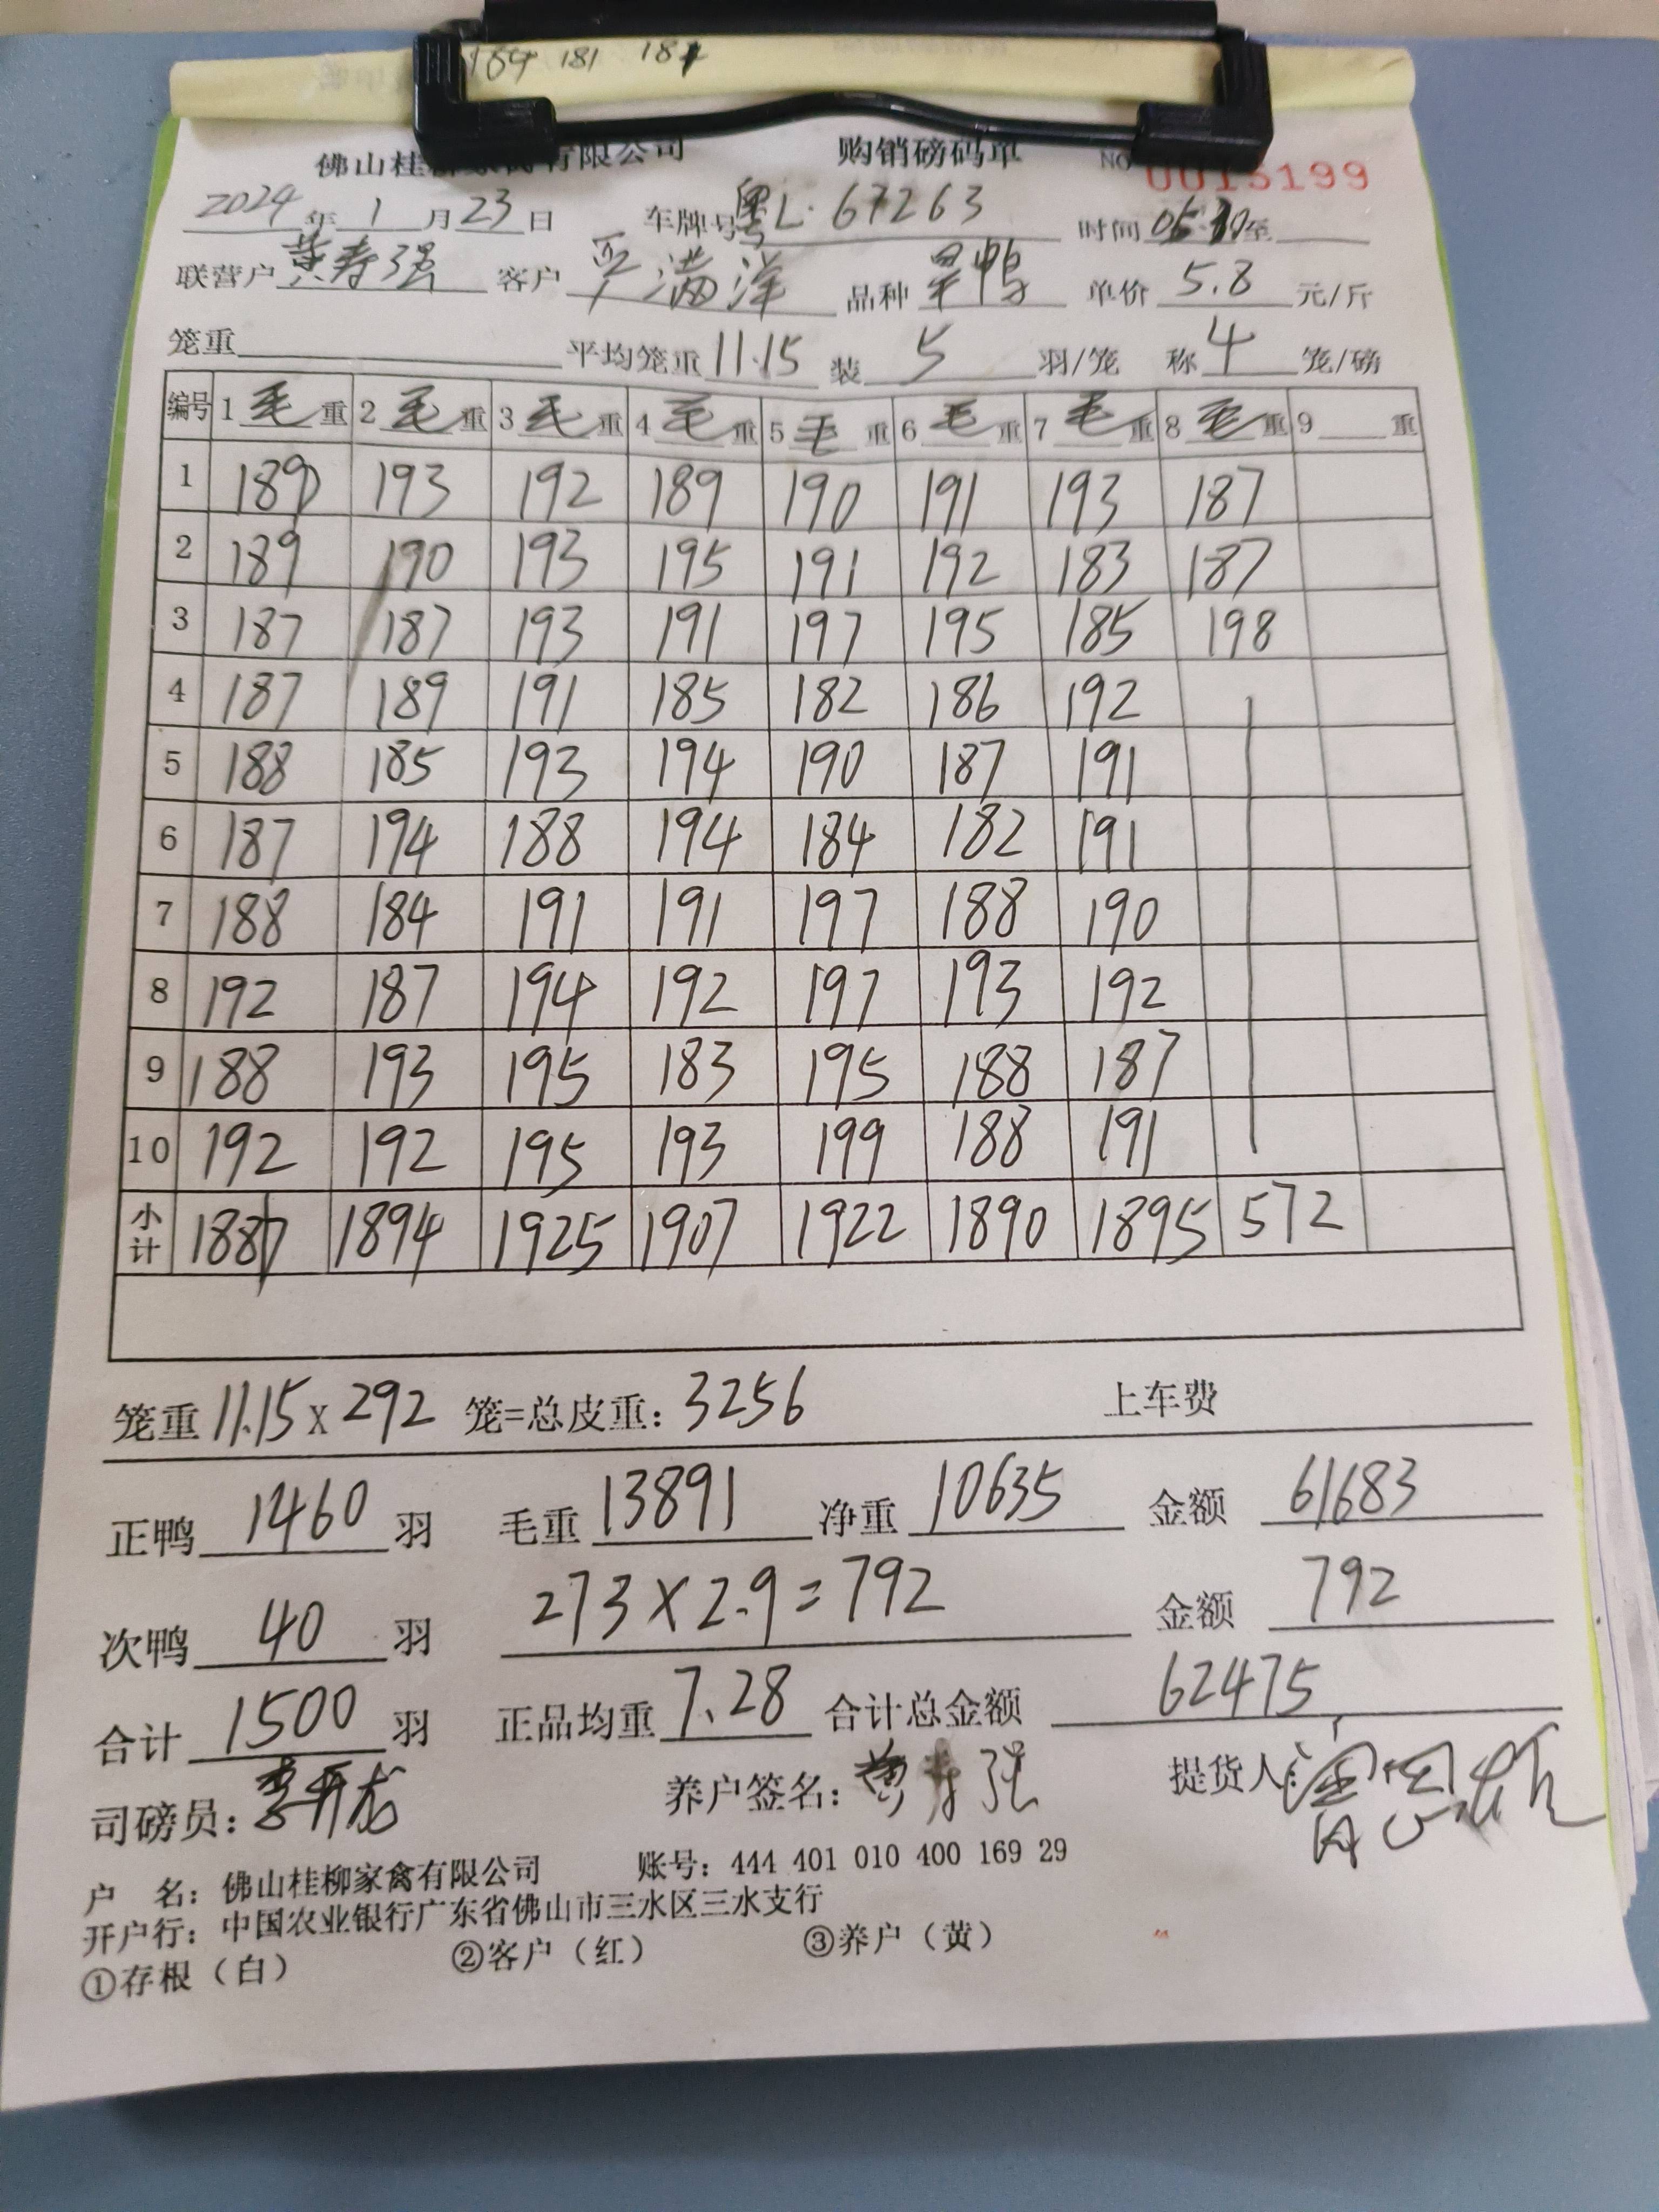 169 181 187
佛山桂柳家禽有限公司 购销磅码单 NO 0015199
2024年1月23日 车牌号粤L·67263 时间05:10至
联营户黄寿强 客户 满洋 品种旱鸭 单价5.8元/斤
笼重 平均笼重11.15 装5羽/笼 称4笼/磅
编号 1毛重 2毛重 3毛重 4毛重 5毛重 6毛重 7毛重 8毛重 9重
1 189 193 192 189 190 191 193 187
2 189 190 193 195 191 192 183 187
3 187 187 193 191 197 195 185 198
4 187 189 191 185 182 186 192
5 188 185 193 194 190 187 191
6 187 194 188 194 184 182 191
7 188 184 191 191 197 188 190
8 192 187 194 192 197 193 192
9 188 193 195 183 195 188 187
10 192 192 195 193 199 188 191
小计 1887 1894 1925 1907 1922 1890 1895 572
笼重11.15X292 笼=总皮重：3256 上车费
正鸭1460羽 毛重13891 净重10635 金额61683
次鸭40羽 273×2.9=792 金额792
合计1500羽 正品均重7.28 合计总金额62475
司磅员： 养户签名：黄寿强 提货人：
户 名：佛山桂柳家禽有限公司 账号：444 401 010 400 169 29
开户行：中国农业银行广东省佛山市三水区三水支行
①存根（白） ②客户（红） ③养户（黄）